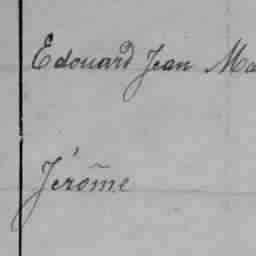 Edouard Jean Ma
Jérôme